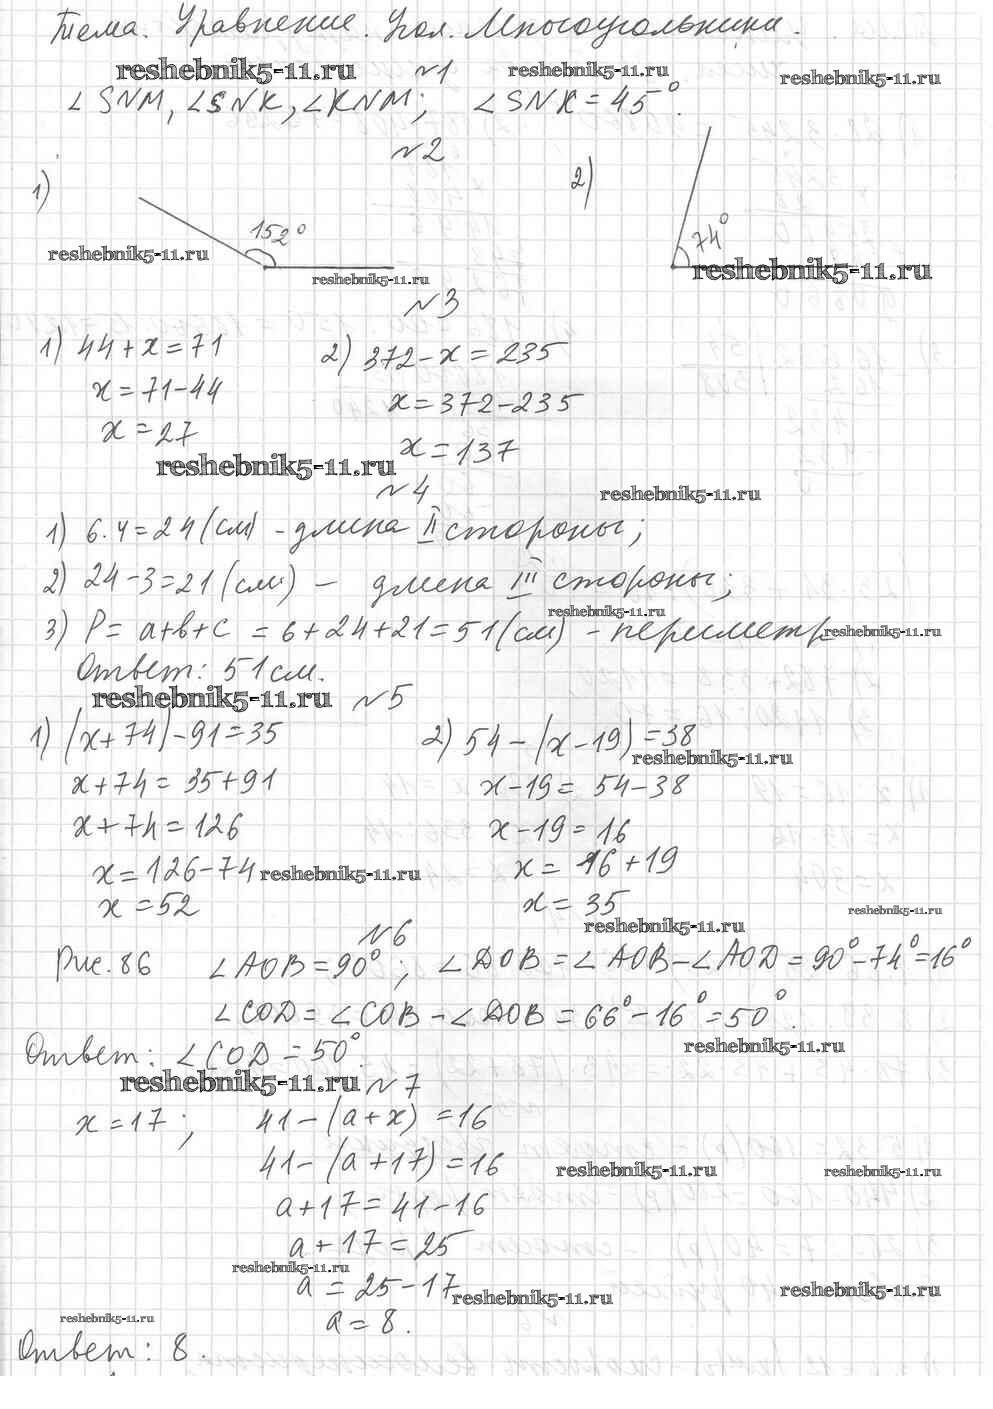 Тема. Уравнение. Угол. Многоугольники.
reshebnik5-11.ru №1 reshebnik5-11.ru reshebnik5-11.ru
∠SNM, ∠SNK, ∠KNM; ∠SNK = 45°.
№2
1) 2)
152° 74°
reshebnik5-11.ru reshebnik5-11.ru reshebnik5-11.ru
№3
1) 44+x=71 2) 372-x=235
x=71-44 x=372-235
x=27 x=137
reshebnik5-11.ru
№4 reshebnik5-11.ru
1) 6·4=24 (см) - длина II стороны;
2) 24-3=21 (см) - длина III стороны;
reshebnik5-11.ru
3) P= a+b+c = 6+24+21=51 (см) - периметр reshebnik5-11.ru
Ответ: 51 см.
reshebnik5-11.ru №5
1) (x+74)-91=35 2) 54-(x-19)=38
reshebnik5-11.ru
x+74= 35+91 x-19= 54-38
x+74=126 x-19=16
x=126-74 reshebnik5-11.ru x= 16+19
x=52 x=35
reshebnik5-11.ru reshebnik5-11.ru
№6
Рис. 86 ∠AOB=90°; ∠DOB=∠AOB-∠AOD=90°-74°=16°
∠COD=∠COB-∠DOB=66°-16°=50°.
Ответ: ∠COD=50°. reshebnik5-11.ru
reshebnik5-11.ru №7
x=17; 41-(a+x)=16
41-(a+17)=16 reshebnik5-11.ru reshebnik5-11.ru
a+17=41-16
a+17=25
reshebnik5-11.ru
a=25-17 reshebnik5-11.ru reshebnik5-11.ru
reshebnik5-11.ru a=8.
Ответ: 8.